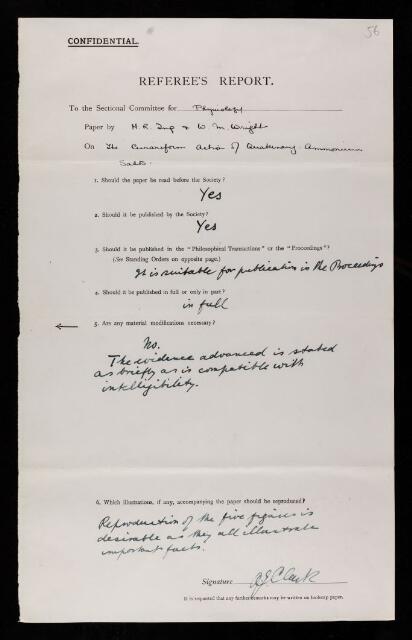 56
CONFIDENTIAL.
REFEREE'S REPORT.
To the Sectional Committee for Physiology
Paper by H. R. Ing & W. M. Wright
On The Curariform Action of Quaternary Ammonium
Salts.
1. Should the paper be read before the Society?
Yes
2. Should it be published by the Society?
Yes
3. Should it be published in the "Philosophical Transactions" or the "Proceedings"?
(See Standing Orders on opposite page.)
It is suitable for publication in the Proceedings
4. Should it be published in full or only in part?
in full
5. Are any material modifications necessary?
No.
The evidence advanced is stated
as briefly as is compatible with
intelligibility.
6. Which illustrations, if any, accompanying the paper should be reproduced?
Reproduction of the five figures is
desirable as they all illustrate
important facts.
Signature A J Clark
It is requested that any further remarks may be written on foolscap paper.